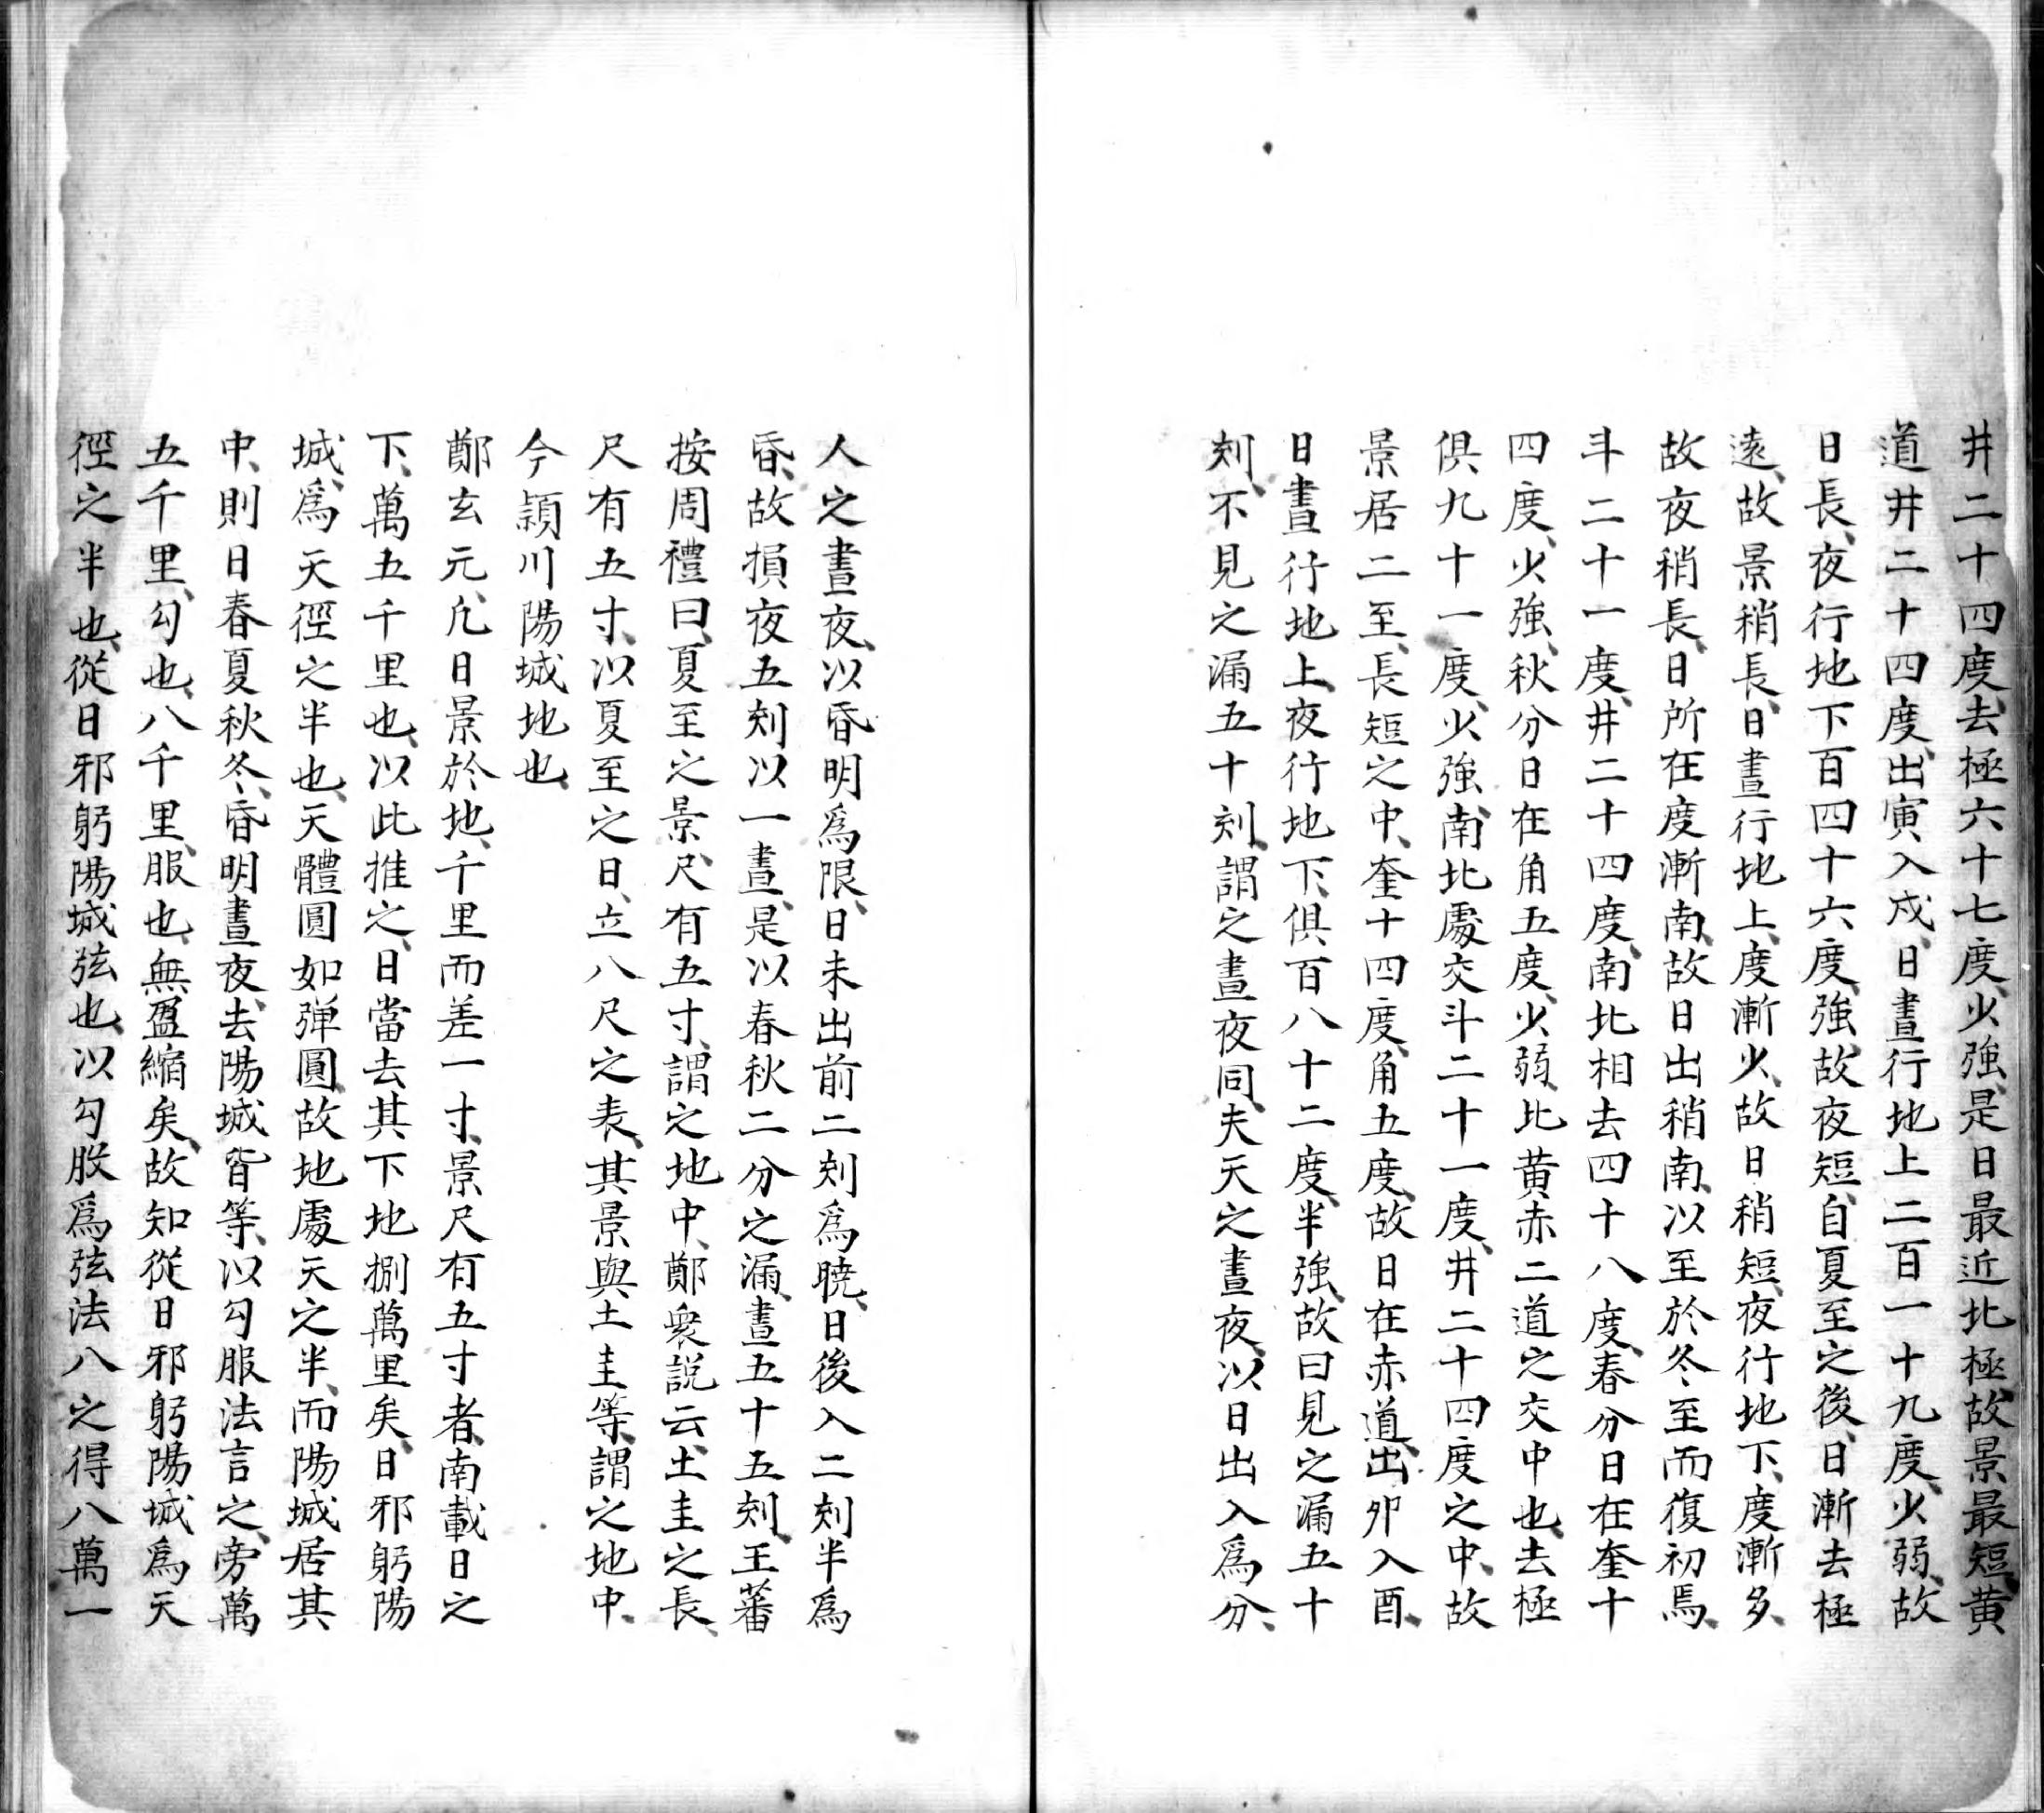 井二十四度、去極六十七度、少強、是日最近北極、故景最短、黃
道井二十四度、出寅入戍、日晝行地上二百一十九度、少弱、故
日長、夜行地下百四十六度、強、故夜短、自夏至之後、日漸去極
遠、故景稍長、日晝行地上、度漸少、故日稍短、夜行地下、度漸多、
故夜稍長、日所在度漸南、故日出稍南、以至於冬至而復初焉、
斗二十一度、井二十四度、南北相去四十八度、春分日在奎十
四度、少強、秋分日在角五度、少弱、比黃赤二道之交中也、去極
俱九十一度、少強、南北處交斗二十一度、井二十四度之中、故
景居二至、長短之中、奎十四度、角五度、故日在赤道、出卯入酉、
日晝行地上、夜行地下、俱百八十二度、半強、故曰見之漏五十
刻、不見之漏五十刻、謂之晝夜同、夫天之晝夜、以日出入爲分、
人之晝夜、以昏明爲限、日未出前二刻爲曉、日後入二刻半爲
昏、故損夜五刻以一晝、是以春秋二分之漏、晝五十五刻、王蕃
按周禮曰、夏至之景、尺有五寸、謂之地中、鄭衆説云、土圭之長、
尺有五寸、以夏至之日、立八尺之表、其景與土圭等、謂之地中、
今潁川陽城地也、
鄭玄元、凡日景於地、千里而差一寸、景尺有五寸者、南載日之
下、萬五千里也、以此推之、日當去其下地捌萬里矣、日邪躬陽
城、爲天徑之半也、天體圓如弾圓、故地處天之半、而陽城居其
中、則日春夏秋冬、昏明晝夜、去陽城皆等、以勾服法言之、旁萬
五千里、勾也、八千里、服也、無盈縮矣、故知從日邪躬陽城爲天
徑之半也、從日邪躬陽城弦也、以勾股爲弦法八之得八萬一